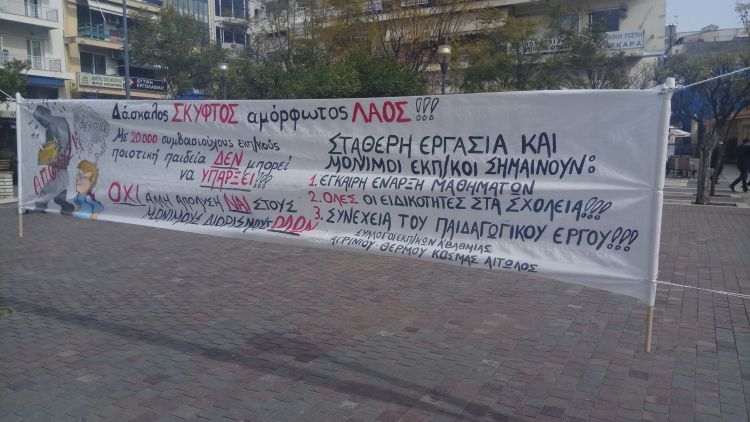 Δάσκαλος ΣΚΥΦΤΟΣ αμόρφωτος ΛΑΟΣ!!!
Με 20.000 συμβασιούχους εκπ/κούς
ποιοτική παιδεία ΔΕΝ μπορεί
να ΥΠΑΡΞΕΙ!
ΟΧΙ ΑΛΛΗ ΑΠΟΛΥΣΗ ΝΑΙ ΣΤΟΥΣ
ΜΟΝΙΜΟΥΣ ΔΙΟΡΙΣΜΟΥΣ ΟΛΩΝ
ΣΤΑΘΕΡΗ ΕΡΓΑΣΙΑ ΚΑΙ
ΜΟΝΙΜΟΙ ΕΚΠ/ΚΟΙ ΣΗΜΑΙΝΟΥΝ:
1. ΕΓΚΑΙΡΗ ΕΝΑΡΞΗ ΜΑΘΗΜΑΤΩΝ
2. ΟΛΕΣ ΟΙ ΕΙΔΙΚΟΤΗΤΕΣ ΣΤΑ ΣΧΟΛΕΙΑ!!!
3. ΣΥΝΕΧΕΙΑ ΤΟΥ ΠΑΙΔΑΓΩΓΙΚΟΥ ΕΡΓΟΥ!!!
ΣΥΛΛΟΓΟΙ ΕΚΠ/ΚΩΝ Α΄ΒΑΘΜΙΑΣ
ΑΓΡΙΝΙΟΥ ΘΕΡΜΟΥ ΚΟΣΜΑΣ ΑΙΤΩΛΟΣ